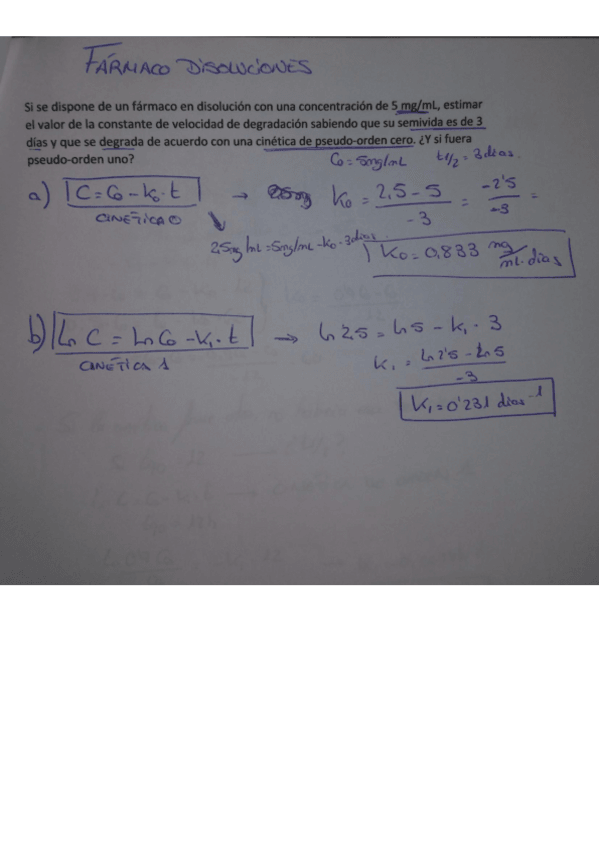 FÁRMACO DISOLUCIONES
Si se dispone de un fármaco en disolución con una concentración de 5 mg/mL, estimar
el valor de la constante de velocidad de degradación sabiendo que su semivida es de 3
días y que se degrada de acuerdo con una cinética de pseudo-orden cero. ¿Y si fuera
pseudo-orden uno?
C0 = 5mg/mL t1/2 = 3 días.
a) C = C0 - K0 · t → K0 = 2,5 - 5 / -3 = -2'5 / -3 =
CINÉTICA 0
2,5mg/mL = 5mg/mL - K0 · 3 días
K0 = 0,833 mg / mL · días
b) Ln C = Ln C0 - K1 · t → Ln 2.5 = Ln 5 - K1 · 3
CINÉTICA 1
K1 = Ln 2'5 - Ln 5 / -3
K1 = 0'231 días-1